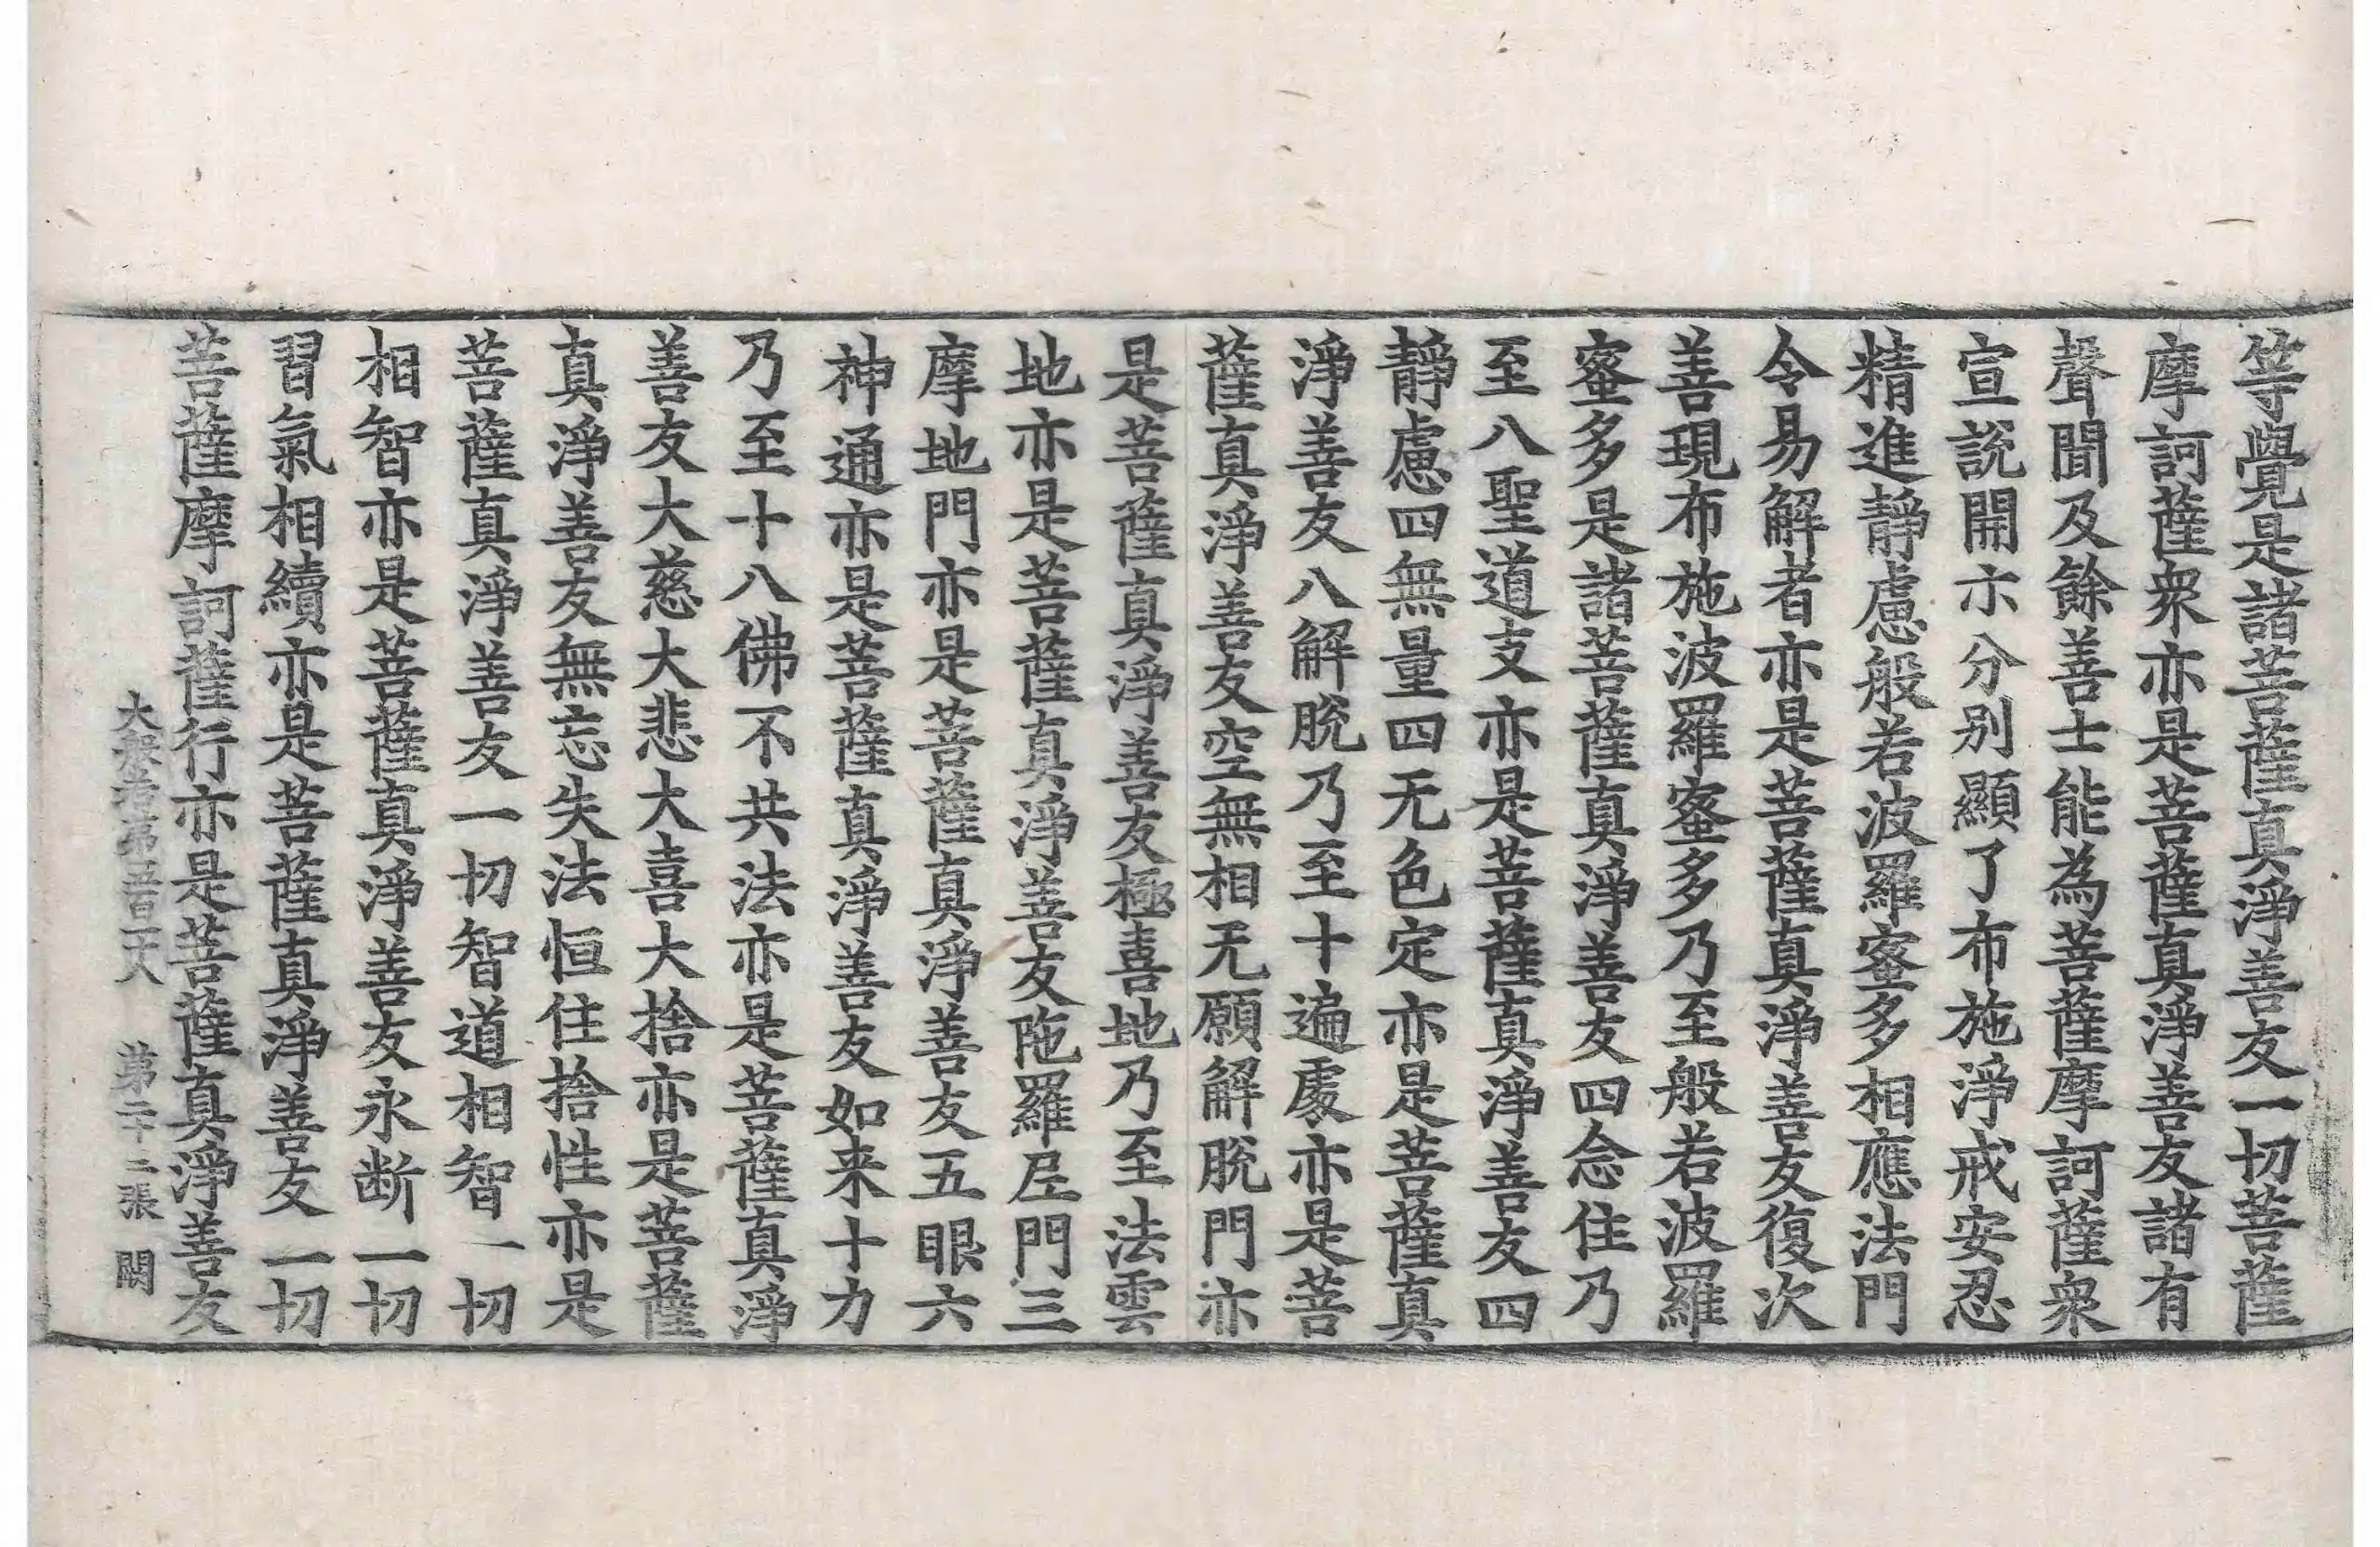 等覺是諸菩薩真淨善友一切菩薩
摩訶薩衆亦是菩薩真淨善友諸有
聲聞及餘善士能為菩薩摩訶薩衆
宣説開示分别顯了布施淨戒安忍
精進靜慮般若波羅蜜多相應法門
令易解者亦是菩薩真淨善友復次
善現布施波羅蜜多乃至般若波羅
蜜多是諸菩薩真淨善友四念住乃
至八聖道支亦是菩薩真淨善友四
靜慮四無量四无色定亦是菩薩真
淨善友八解脱乃至十遍處亦是菩
薩真淨善友空無相无願解脱門亦
是菩薩真淨善友極喜地乃至法雲
地亦是菩薩真淨善友陁羅尼門三
摩地門亦是菩薩真淨善友五眼六
神通亦是菩薩真淨善友如来十力
乃至十八佛不共法亦是菩薩真淨
善友大慈大悲大喜大捨亦是菩薩
真淨善友無忘失法恒住捨性亦是
菩薩真淨善友一切智道相智一切
相智亦是菩薩真淨善友永断一切
習氣相續亦是菩薩真淨善友一切
菩薩摩訶薩行亦是菩薩真淨善友
大般若第五百 第二十二張